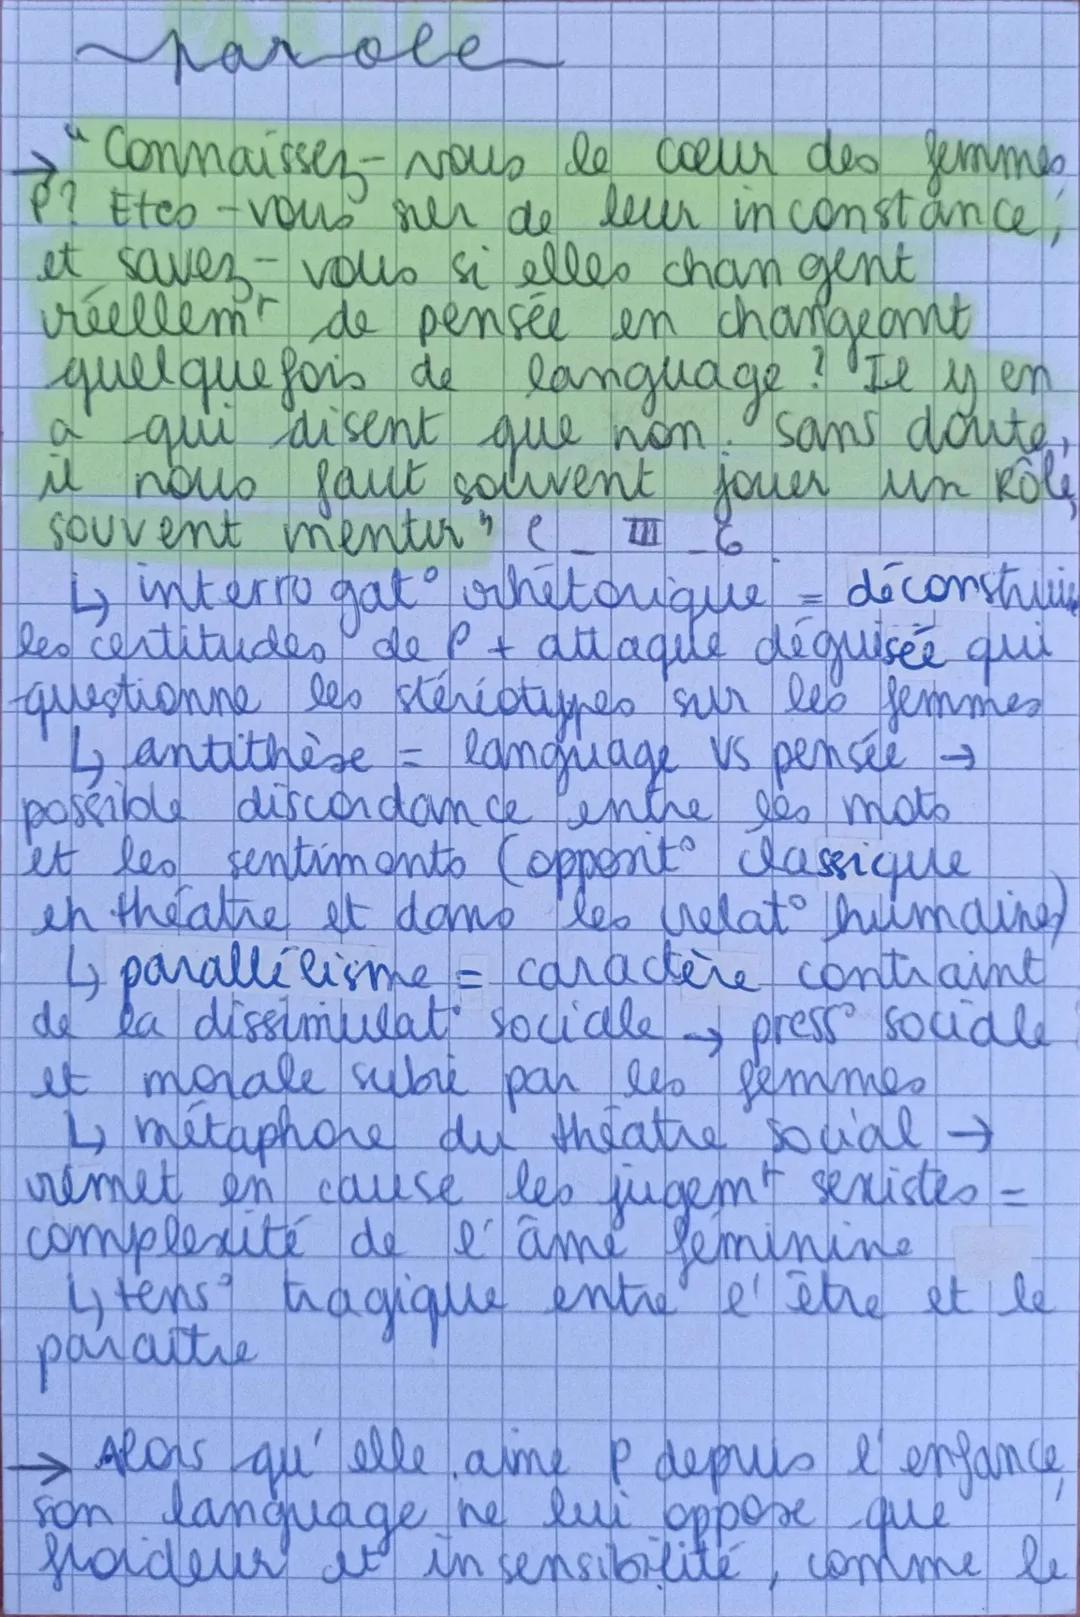 parole
→ "Connaissez-vous le cœur des femmes,
P? Etes-vous sur de leur inconstance,
et savez-vous si elles changent
réellemt de pensée en changeant
quelquefois de language? Il y en
a qui disent que non. Sans doute,
il nous faut souvent jouer un rôle,
souvent mentir" C_III_6
↳ interrogat° rhétorique = déconstruire
les certitudes de P + attaque déguisée qui
questionne les stéréotypes sur les femmes
↳ antithèse = language vs pensée →
possible discordance entre les mots
et les sentiments (opposit° classique
en théatre et dans les relat° humaines)
↳ parallélisme = caractère contraint
de la dissimulat° sociale → press° sociale
et morale subie par les femmes
↳ métaphore du théatre social →
remet en cause les jugemt sexistes =
complexité de l'âme féminine
↳ tens° tragique entre l'être et le
paraître
→ Alors qu'elle aime P depuis l'enfance,
son language ne lui oppose que
froideur et insensibilité, comme le